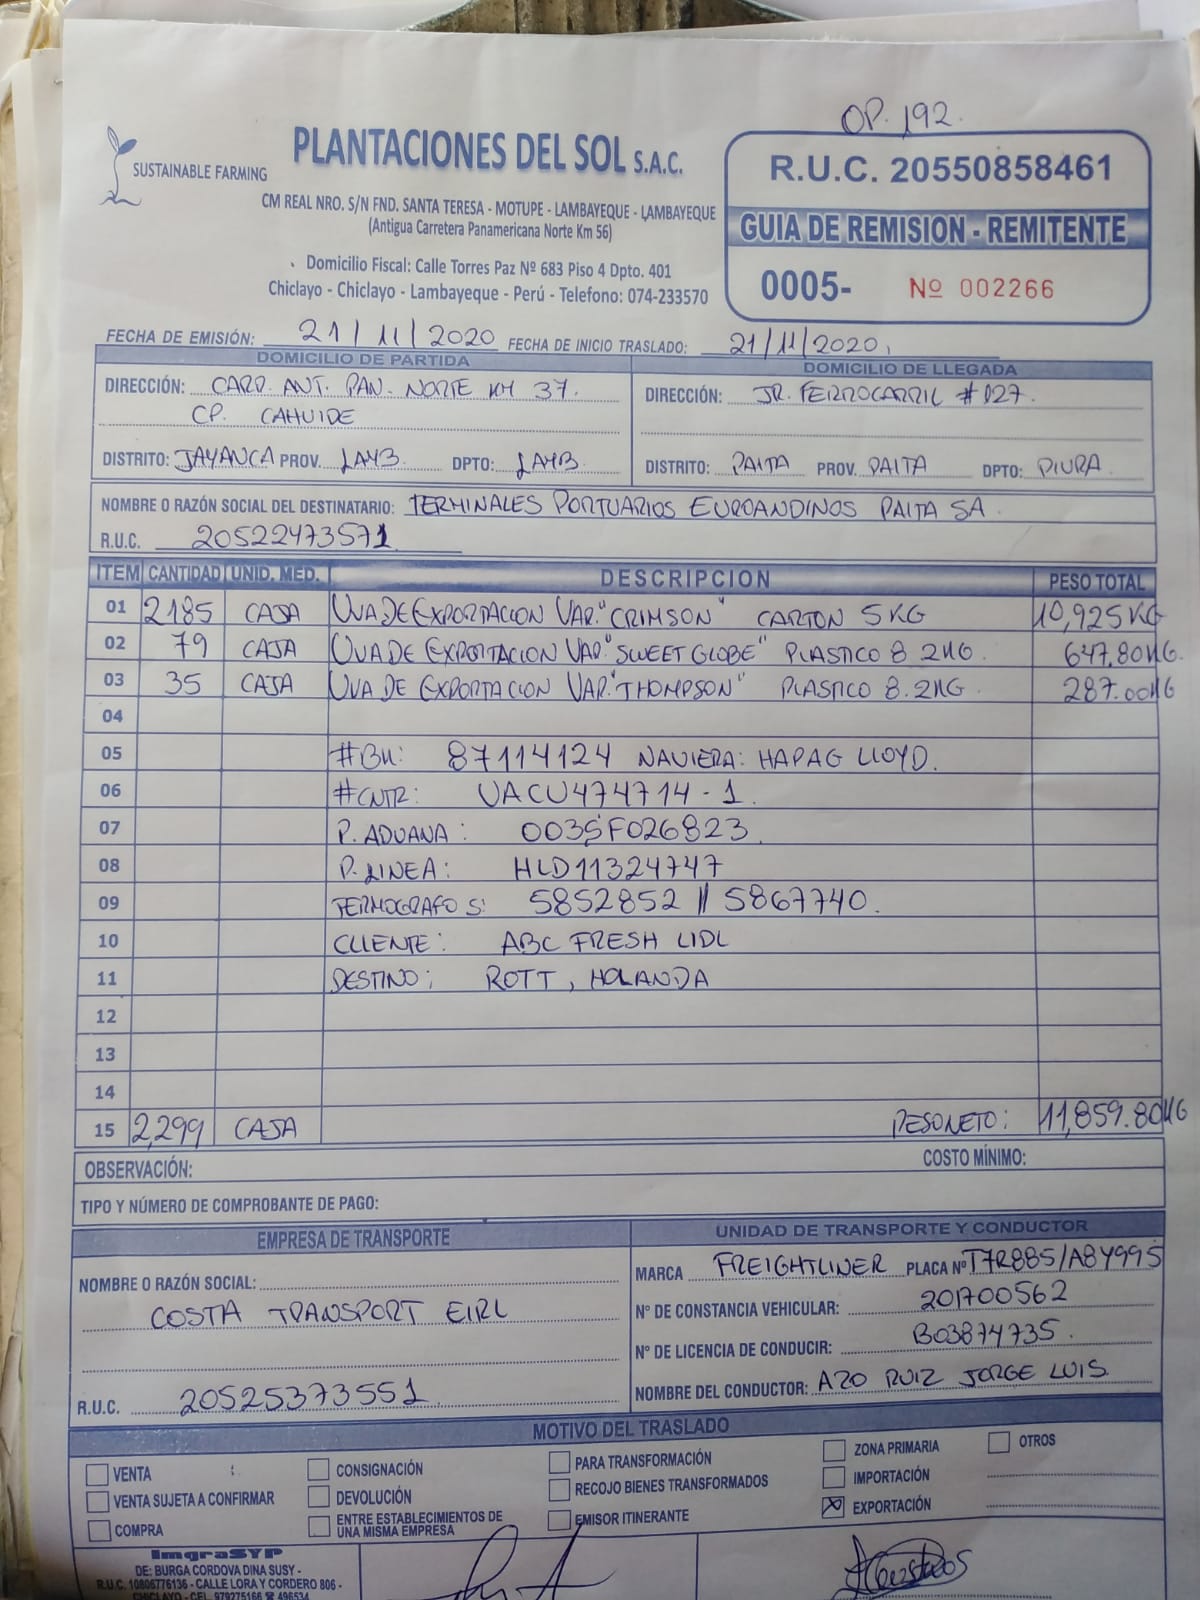 OP. 192.
SUSTAINABLE FARMING
PLANTACIONES DEL SOL S.A.C.
CM REAL NRO. S/N FND. SANTA TERESA - MOTUPE - LAMBAYEQUE - LAMBAYEQUE
(Antigua Carretera Panamericana Norte Km 56)
Domicilio Fiscal: Calle Torres Paz Nº 683 Piso 4 Dpto. 401
Chiclayo - Chiclayo - Lambayeque - Perú - Telefono: 074-233570
R.U.C. 20550858461
GUIA DE REMISION - REMITENTE
0005- Nº 002266
FECHA DE EMISIÓN: 21/11/2020 FECHA DE INICIO TRASLADO: 21/11/2020.
DOMICILIO DE PARTIDA
DIRECCIÓN: CARR. ANT. PAN. NORTE KM 37.
CP. CAHUIDE
DISTRITO: JAYANCA PROV. LAMB. DPTO: LAMB.
DOMICILIO DE LLEGADA
DIRECCIÓN: JR. FERROCARRIL #127.
DISTRITO: PAITA PROV. PAITA DPTO: PIURA.
NOMBRE O RAZÓN SOCIAL DEL DESTINATARIO: TERMINALES PORTUARIOS EUROANDINOS PAITA SA.
R.U.C. 20522473571
ITEM CANTIDAD UNID. MED. DESCRIPCION PESO TOTAL
01 2185 CAJA UVA DE EXPORTACION VAR. "CRIMSON" CARTON 5 KG 10,925 KG
02 79 CAJA UVA DE EXPORTACION VAR. "SWEET GLOBE" PLASTICO 8.2KG. 647.80KG.
03 35 CAJA UVA DE EXPORTACION VAR. "THOMPSON" PLASTICO 8.2KG. 287.00KG
04
05 #BK: 87114124 NAVIERA: HAPAG LLOYD.
06 #CNTR: UACU474714-1.
07 P. ADUANA: 0035F026823.
08 P. LINEA: HLD11324747
09 TERMOGRAFOS: 5852852 // 5867740.
10 CLIENTE: ABC FRESH LIDL
11 DESTINO: ROTT, HOLANDA
12
13
14
15 2,299 CAJA PESO NETO: 11,859.80KG
OBSERVACIÓN: COSTO MÍNIMO:
TIPO Y NÚMERO DE COMPROBANTE DE PAGO:
EMPRESA DE TRANSPORTE
NOMBRE O RAZÓN SOCIAL:
COSTA TRANSPORT EIRL
R.U.C. 20525373551
UNIDAD DE TRANSPORTE Y CONDUCTOR
MARCA FREIGHTLINER PLACA Nº T7R885/A8Y995
Nº DE CONSTANCIA VEHICULAR: 201700562
Nº DE LICENCIA DE CONDUCIR: B03874735.
NOMBRE DEL CONDUCTOR: AZO RUIZ JORGE LUIS.
MOTIVO DEL TRASLADO
VENTA CONSIGNACIÓN PARA TRANSFORMACIÓN ZONA PRIMARIA OTROS
VENTA SUJETA A CONFIRMAR DEVOLUCIÓN RECOJO BIENES TRANSFORMADOS IMPORTACIÓN
COMPRA ENTRE ESTABLECIMIENTOS DE UNA MISMA EMPRESA EMISOR ITINERANTE X EXPORTACIÓN
ImgraSYP
DE: BURGA CORDOVA DINA SUSY -
R.U.C. 10806776136 - CALLE LORA Y CORDERO 806 -
CHICLAYO - CEL. 979275166 ☎ 496534